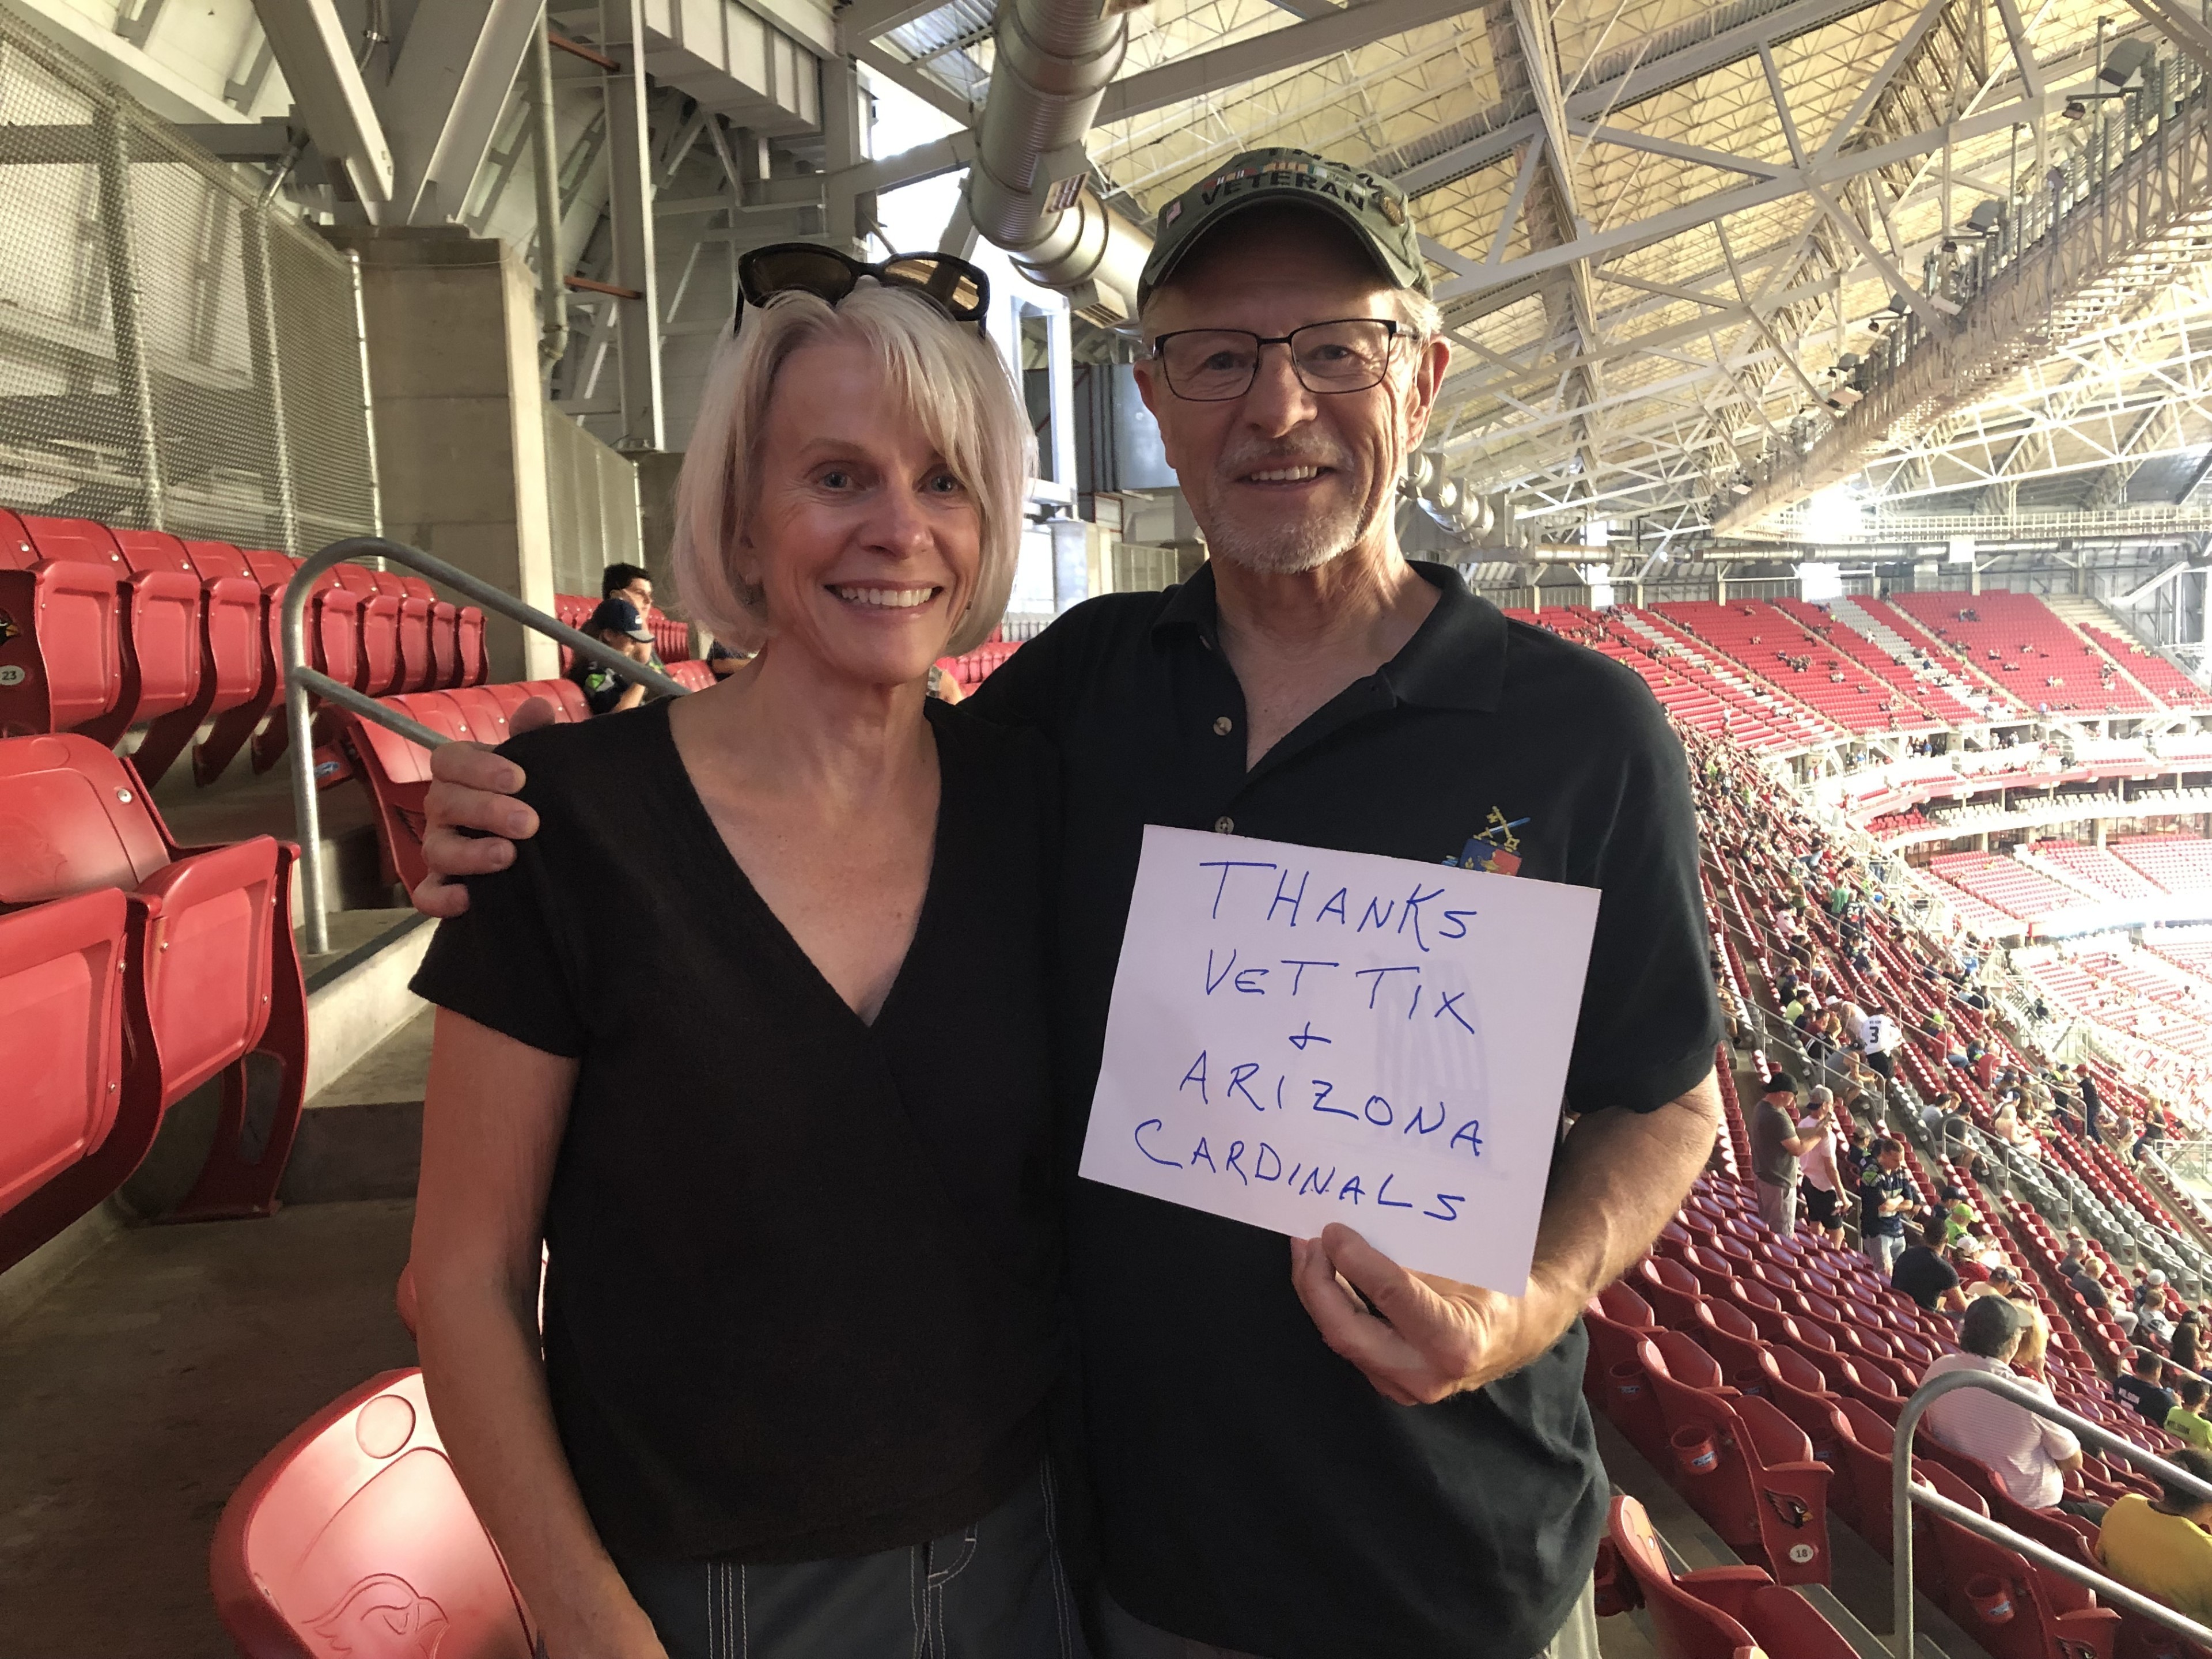 VETERAN
THANKS
VET TIX
&
ARIZONA
CARDINALS
23
3
18